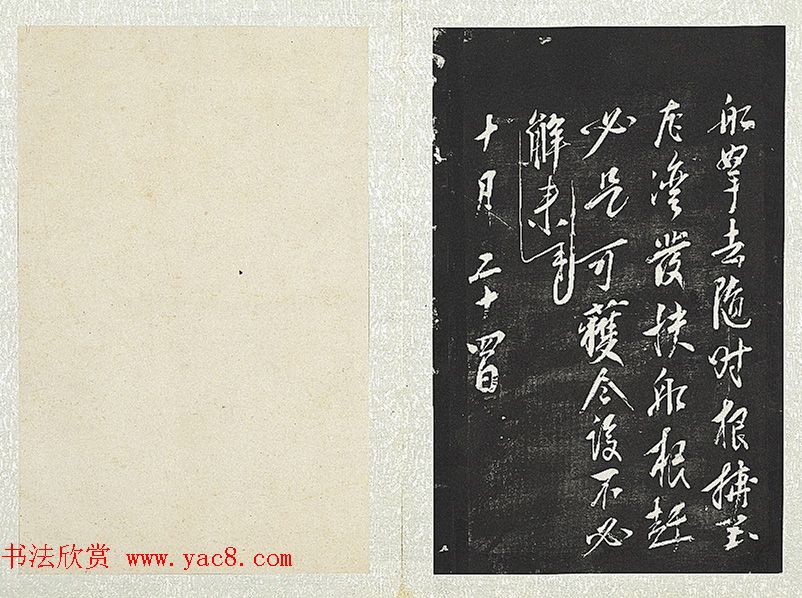 船拏去随时根捕至
湾發扶船根赶
必是可獲今後不必
解来
十月二十四日
书法欣赏 www.yac8.com